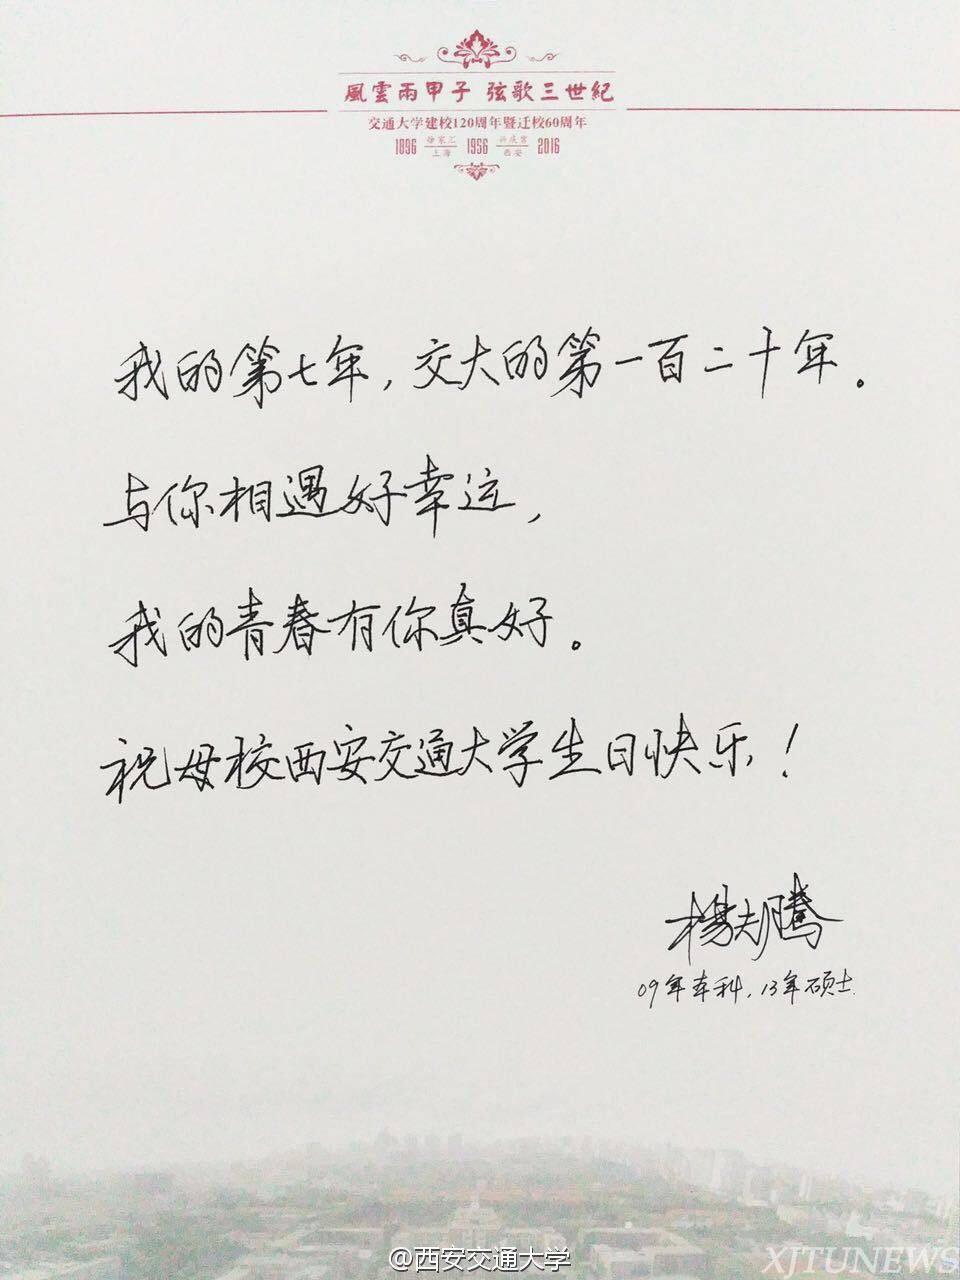 風雲兩甲子 弦歌三世紀
交通大学建校120周年暨迁校60周年
1896 徐家汇 上海 1956 兴庆宫 西安 2016
我的第七年，交大的第一百二十年。
与你相遇好幸运，
我的青春有你真好。
祝母校西安交通大学生日快乐！
09年本科，13年硕士
@西安交通大学
XJTUNEWS